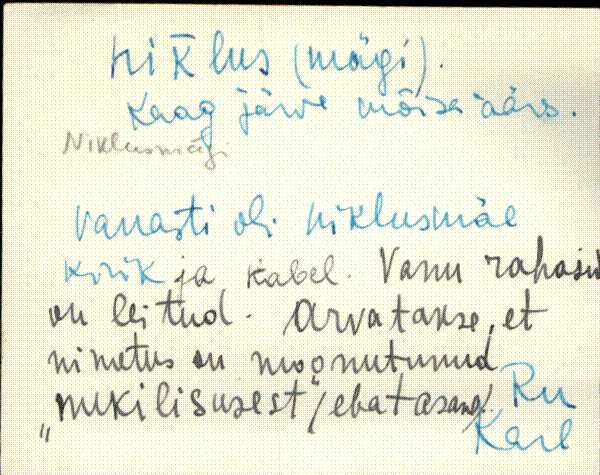 Niklus (mägi).
Kaagjärve mõisa ääres.
Niklusmägi
Vanasti oli Niklusmäe
kirik ja kabel. Vanu rahasid
on leitud. Arvatakse, et
nimetus on moonutunud
"nukilisusest" (ebatasang). Ru
Karl